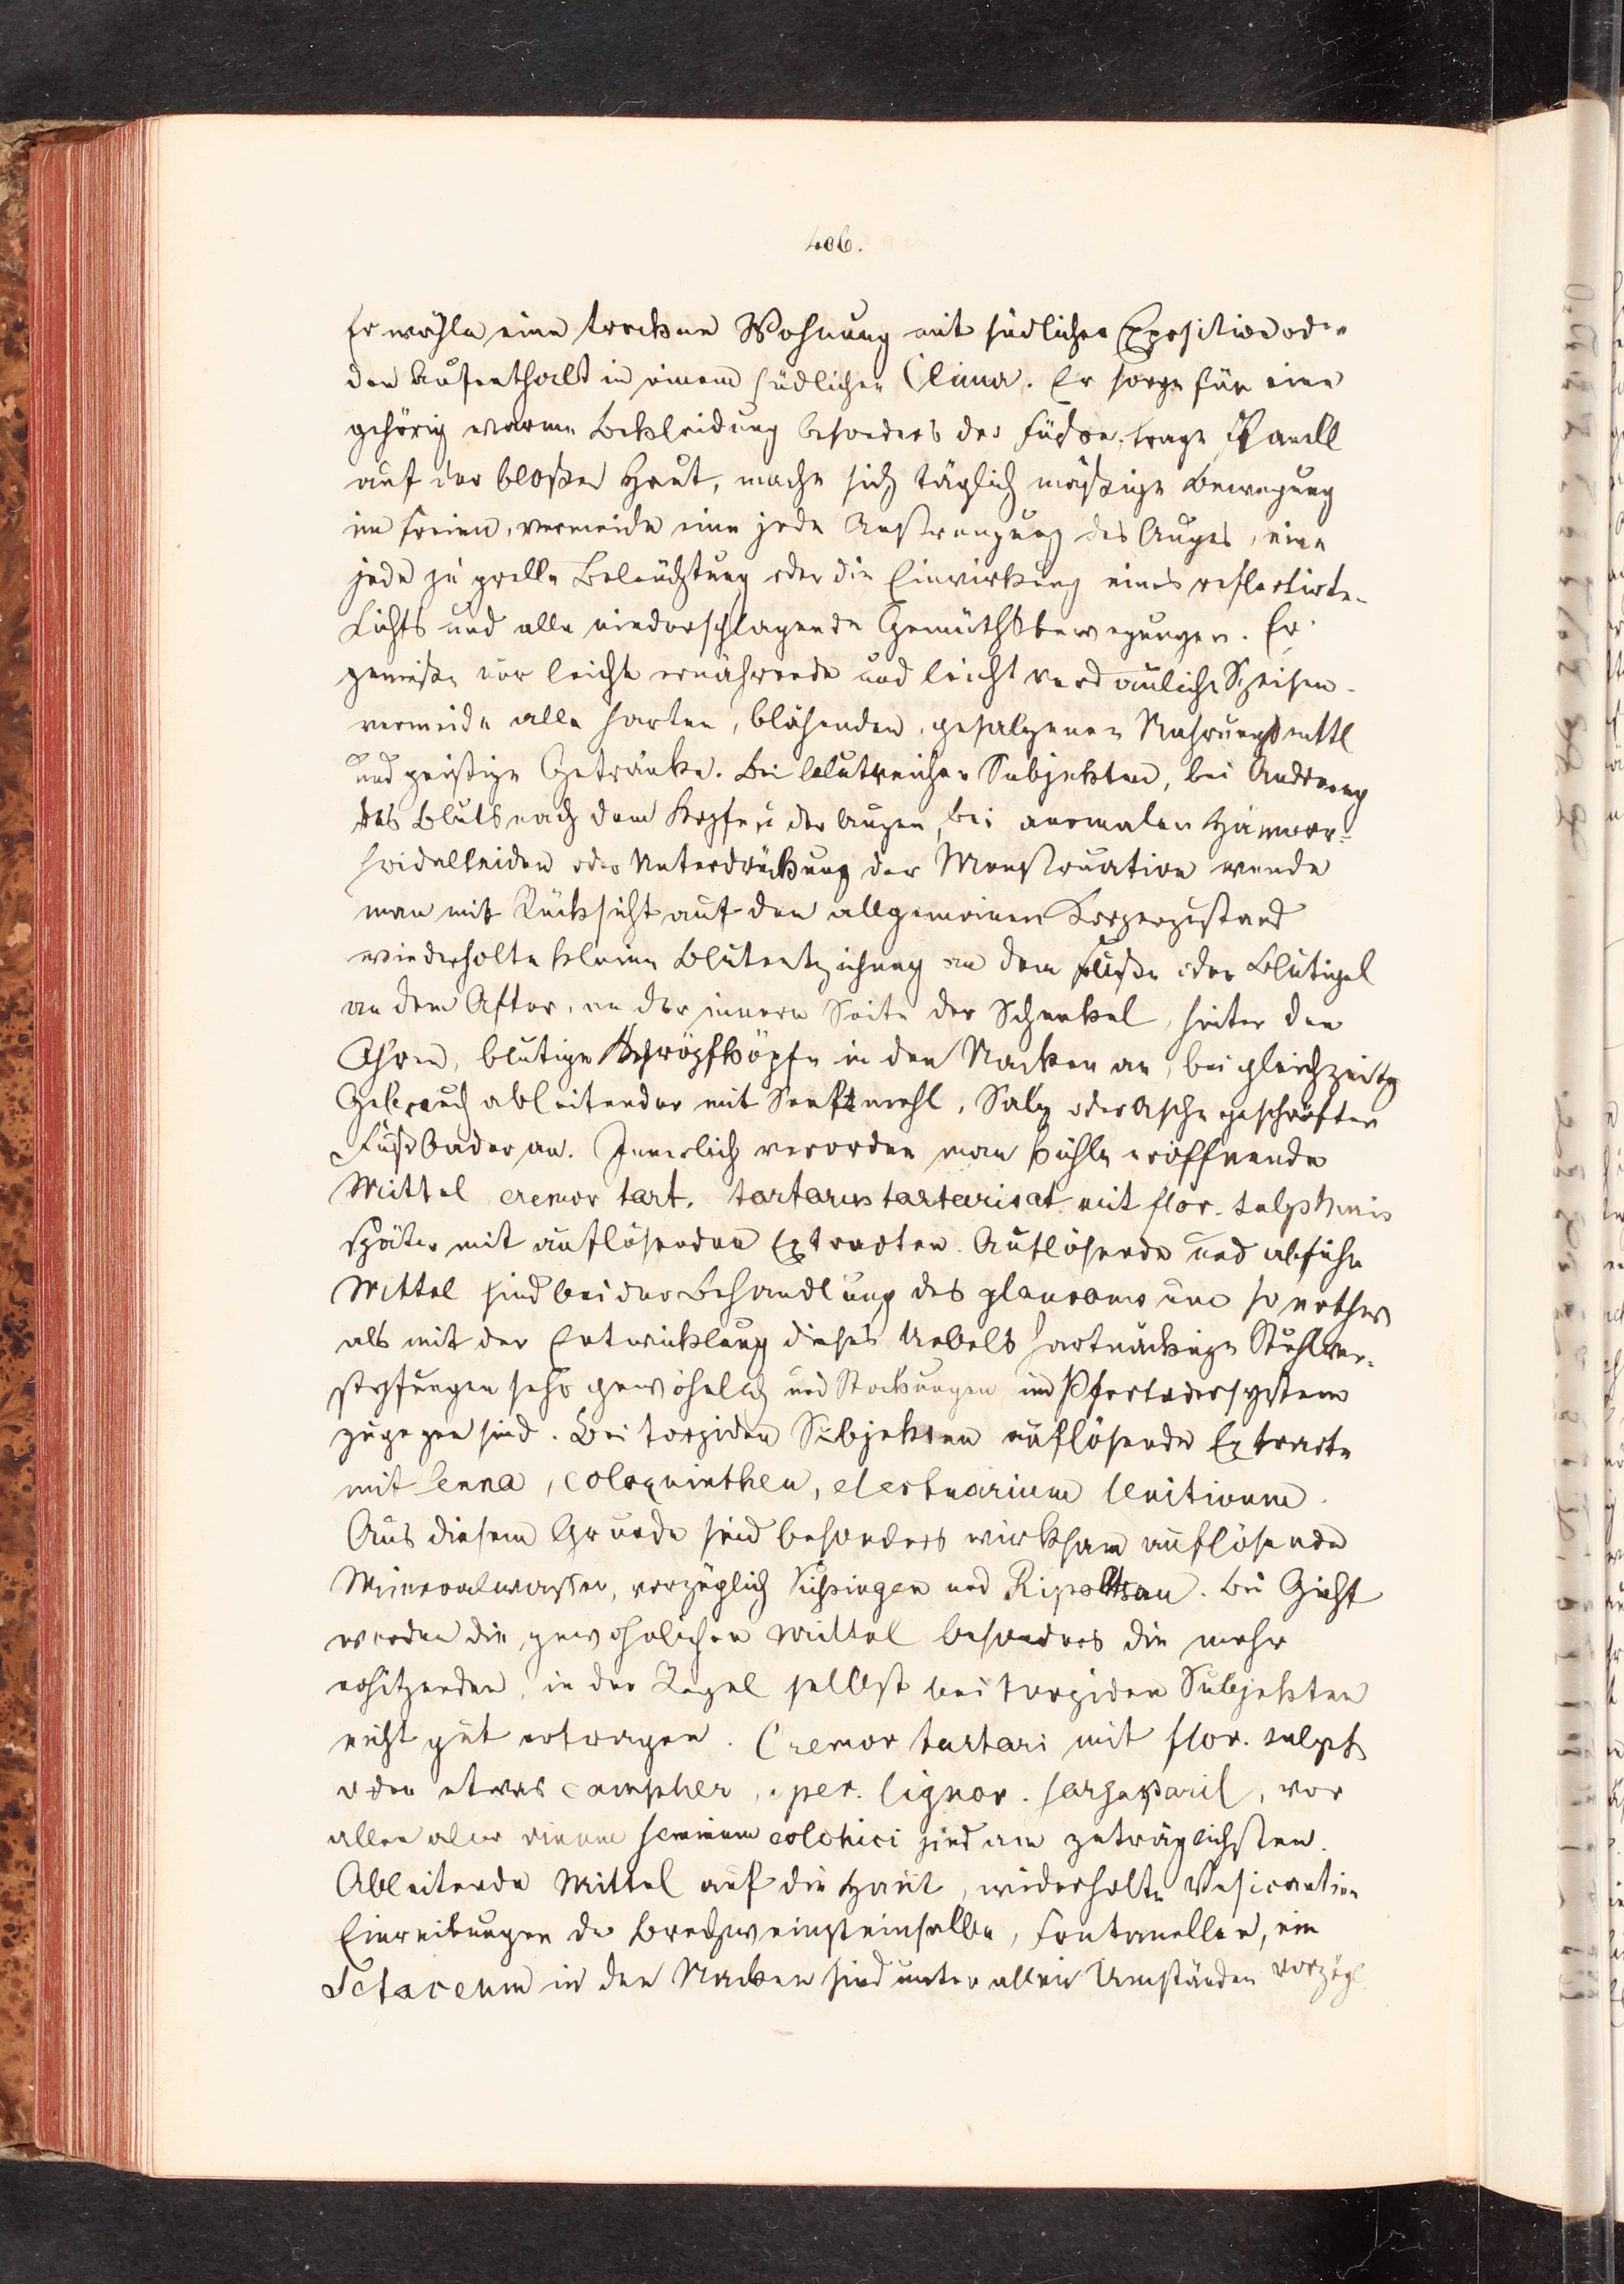 406.
Er wähle eine trockne Wohnung mit südlicher Exposition oder
den Aufenthalt in einem südlichen Clima. Er sorge für eine
gehörig warme Bekleidung besonders der Füße, trage Flanell
auf der bloßen Haut, mache sich täglich mäßige Bewegung
im Freien, vermeide eine jede Anstrengung des Auges, eine
jede zu grelle Beleuchtung oder die Einwirkung eines reflectirten
Lichts und alle niederschlagende Gemüthsbewegungen. Er
genieße nur leicht ernährende und leicht verdauliche Speisen
vermeide alle harten, blähenden, gesalzenen Nahrungsmittl
und geistige Getränke. Bei blutreichen Subjekten, bei Andrang
des Bluts nach dem Kopfe u der Augen, bei anomalen Hämorr-
hoidalleiden oder Unterdrückung der Menstruation wende
man mit Rücksicht auf den allgemeinen Körperzustand
wiederholte kleine Blutentziehung an dem Fuße oder Blutigel
an dem After, an der innern Seite der Schenkel, hinter den
Ohren, blutige Schröpfköpfe in den Nacken an, bei gleichzeitg
Gebrauch ableitender mit Senfmehl, Salz oder Asche geschärften
Fußbäder an. Innerlich verordne man kühle eröffnende
Mittel cremor tart. tartarus tartarisat mit flor. sulphuris
später mit auflösenden Extracten. Auflösende und abführ
Mittel sind bei der Behandlung des glaucoms um so nöthiger
als mit der Entwicklung dieses Uebels hartnäckige Stuhlver-
stopfungen sehr gewöhnlich und Stockungen im Pfortadersystem
zugegen sind. Bei torpiden Subjekten auflösende Extracte
mit Senna, Coloquinthen, electuarium lenitivum.
Aus diesem Grunde sind besonders wirksam auflösende
Mineralwasser, vorzüglich Kissingen und Ripoltsau. Bei Gicht
werden die gewöhnlichen Mittel besonders die mehr
erhitzenden, in der Regel selbst bei torpiden Subjekten
nicht gut ertragen. Cremor tartari mit flor. sulph
oder etwas campher, sper. lignor. sarsaparil, vor
allen aber vinum seminum colchici sind am zuträglichsten.
Ableitende Mittel auf die Haut, wiederholte Vesicantien
Einreibungen der Brechweinsteinsalbe, Fontanellen, ein
Setaceum in den Nacken sind unter allen Umständen vorzügl